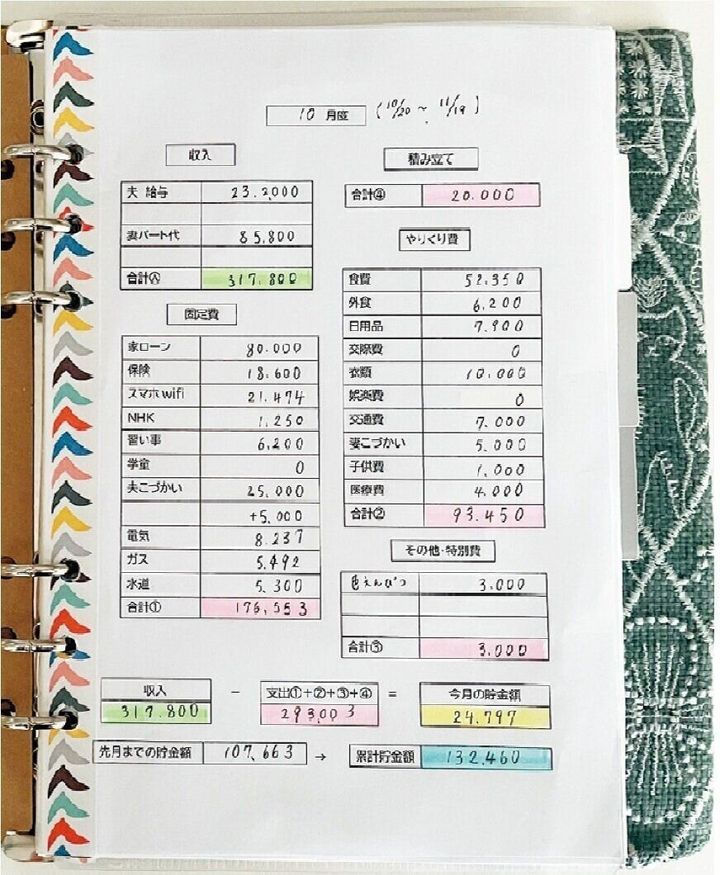 10 月度 (10/20 ~ 11/19)
収入
夫 給与 23.2000
妻パート代 85,800
合計Ⓐ 317.800
固定費
家ローン 80.000
保険 18.600
スマホwifi 21.474
NHK 1.250
習い事 6,200
学童 0
夫こづかい 25,000
+5,000
電気 8.237
ガス 5.492
水道 5.300
合計① 176,553
積み立て
合計④ 20.000
やりくり費
食費 52.350
外食 6,200
日用品 7.900
交際費 0
衣類 10.000
娯楽費 0
交通費 7.000
妻こづかい 5.000
子供費 1,000
医療費 4.000
合計② 93.450
その他・特別費
色えんぴつ 3.000
合計③ 3,000
収入 − 支出①+②+③+④ = 今月の貯金額
317.800 293,003 24.797
先月までの貯金額 107,663 → 累計貯金額 132,460